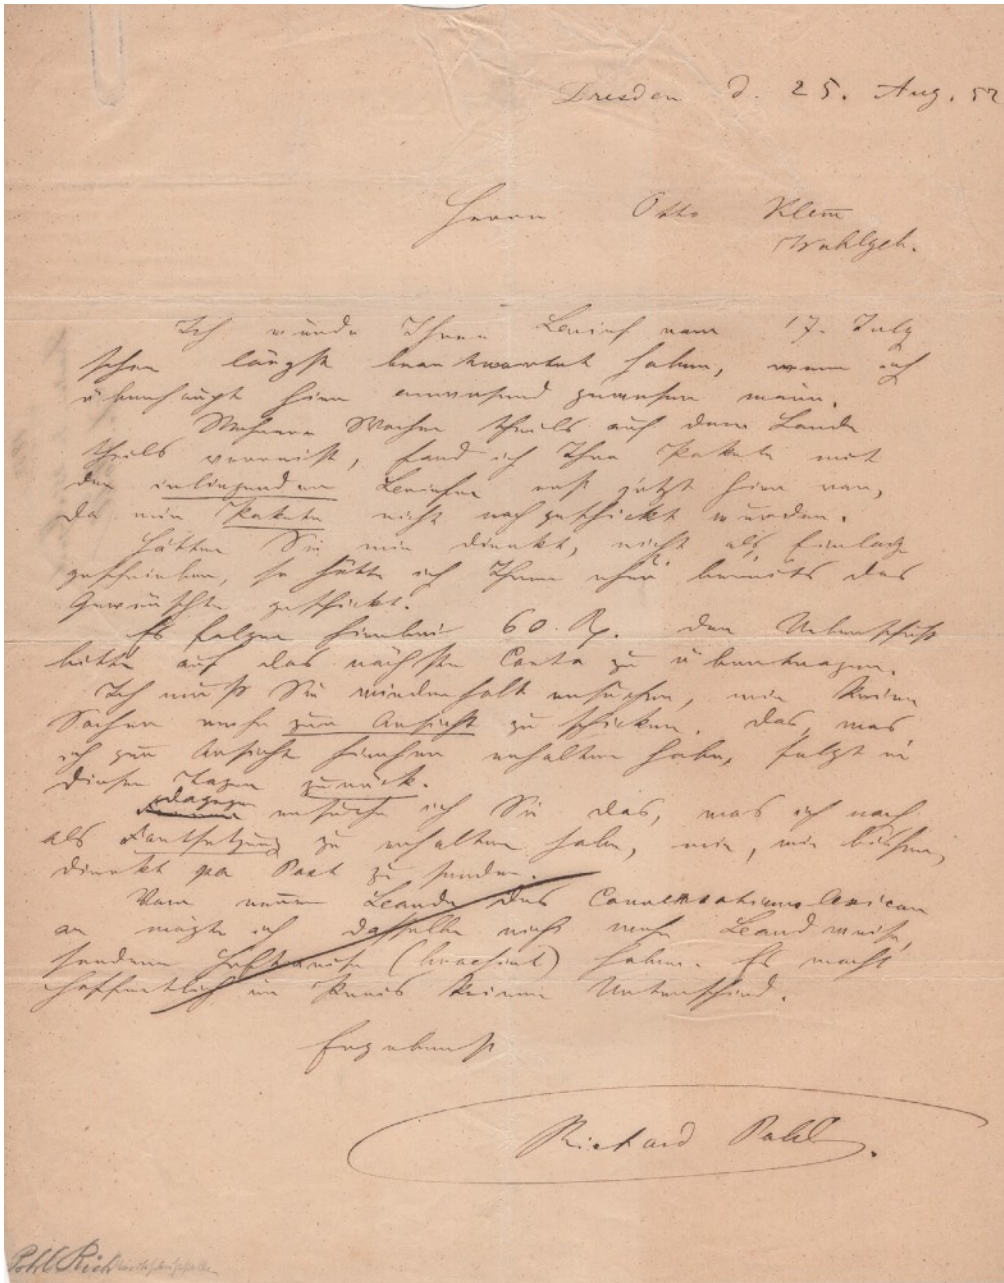 Dresden d. 25. Aug. 52
Herrn Otto Klem̅
Wohlgeb.
Ich würde Ihren Brief vom 17. July
schon längst beantwortet haben, wenn ich
überhaupt hier anwesend gewesen wäre.
Mehrere Wochen theils auf dem Lande
theils verreist, fand ich Ihre Pakete mit
den inliegenden Briefen erst jetzt hier vor,
da mir Pakete nicht nachgeschickt wurden.
Hätten Sie mir direkt, nicht als Einlage
geschrieben, so hätte ich Ihnen eher bereits das
Gewünschte geschickt.
Es folgen hierbei 60 Rp. den Ueberschuß
bitte auf das nächste Conto zu übertragen.
Ich muß Sie wiederholt ersuchen, mir keine
Sachen mehr zur Ansicht zu schicken. Das, was
ich zur Ansicht hierher erhalten habe, folgt in
diesen Tagen zurück.
Dagegen ersuche ich Sie das, was ich noch
als Fortsetzung zu erhalten habe, mir, wie bisher,
direkt per Post zu senden.
Vom neuen Bande des Conversationslexicon
an möchte ich dasselbe nicht mehr Bandweise,
sondern Heftweise (brochirt) haben. Es macht
hoffentlich im Preis keinen Unterschied.
Ergebenst
Richard Pohl.
Pohl Rich